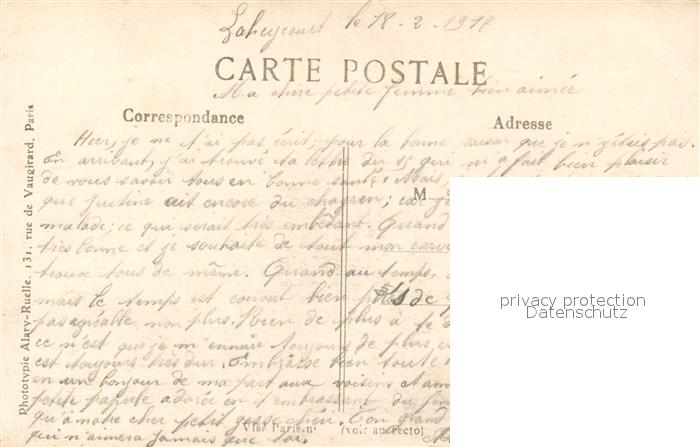 Laheycourt le 18-2-1917
CARTE POSTALE
Ma chere petite femme bien aimée
Correspondance
Adresse
Hier, je ne t'ai pas écrit, pour la bonne raison que je n'y étais pas.
En arrivant, j'ai trouvé ta lettre du 15 qui m'a fait bien plaisir
de vous savoir tous en bonne santé. Mais,
M
que Justine ait encore du chagrin; car je
malade; ce qui serait très embêtant. Quand
très bonne et je souhaite de tout mon cœur
trouve tous de même. Quand au temps,
mais le temps est couvert bien de
pas agréable non plus. Rien de plus à te
ce n'est que je m'ennuie toujours de plus en
est toujours très dur. Embrasse bien toute
en un bonjour de ma part aux voisins et amis
petite adorée en t'embrassant
qu'à notre cher petit gosse chéri. Ton grand
qui n'aimera jamais que toi.
Visé Paris. nº (voir au recto)
Phototypie Alary-Ruelle. 131, rue de Vaugirard, Paris
privacy protection
Datenschutz